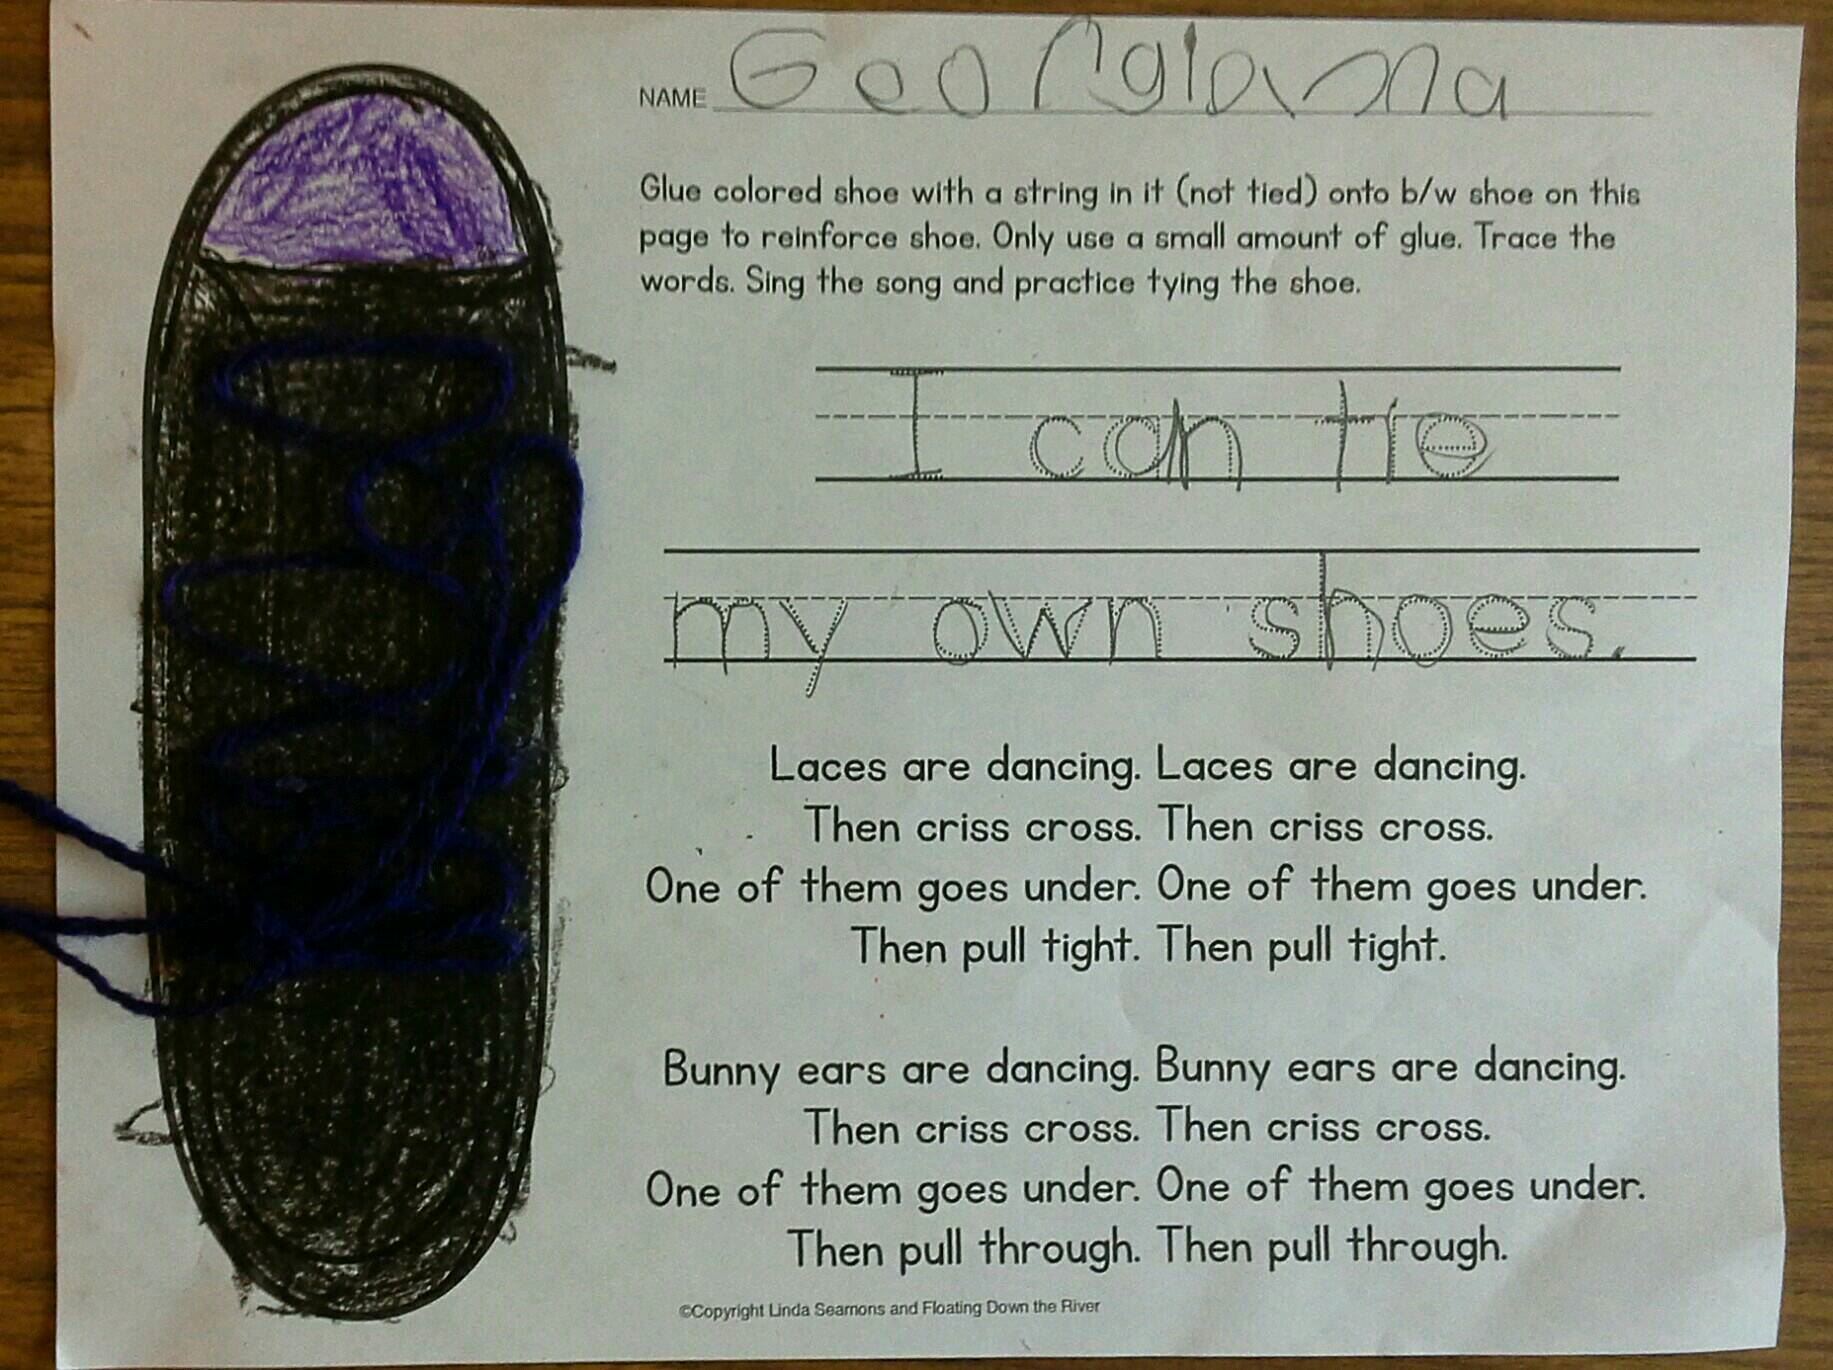 NAME Georgianna
Glue colored shoe with a string in it (not tied) onto b/w shoe on this
page to reinforce shoe. Only use a small amount of glue. Trace the
words. Sing the song and practice tying the shoe.
I can tie
my own shoes.
Laces are dancing. Laces are dancing.
Then criss cross. Then criss cross.
One of them goes under. One of them goes under.
Then pull tight. Then pull tight.
Bunny ears are dancing. Bunny ears are dancing.
Then criss cross. Then criss cross.
One of them goes under. One of them goes under.
Then pull through. Then pull through.
©Copyright Linda Seamons and Floating Down the River